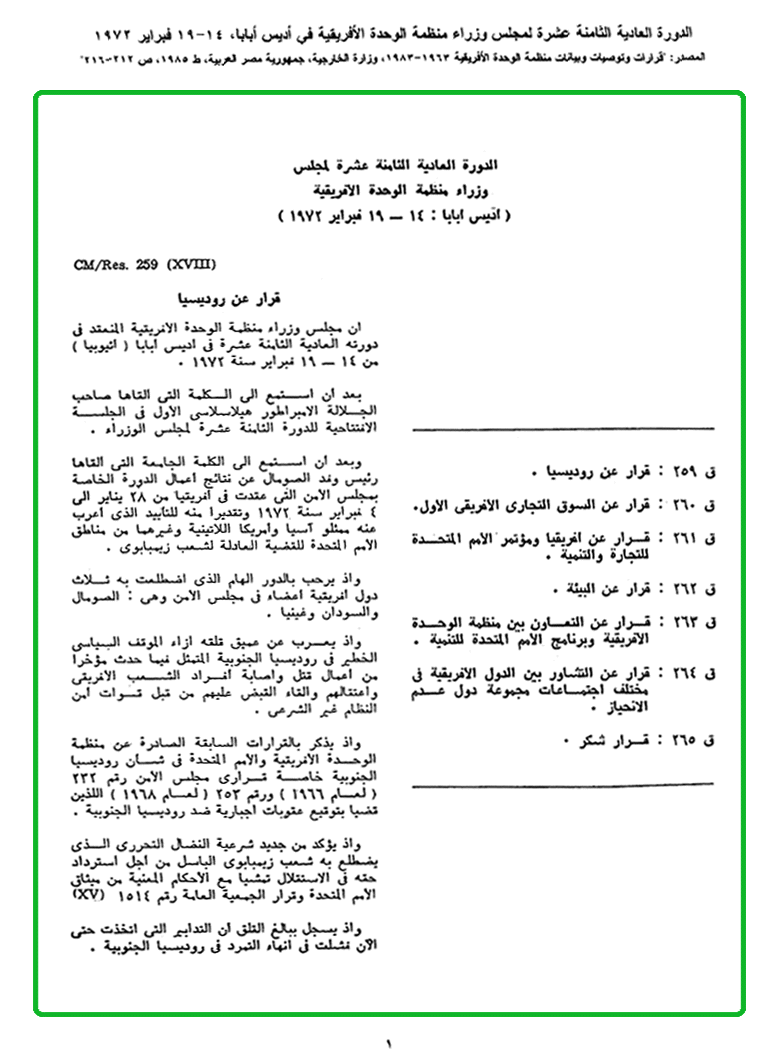 الدورة العادية الثامنة عشرة لمجلس وزراء منظمة الوحدة الأفريقية في أديس أبابا، ١٤-١٩ فبراير ١٩٧٢
المصدر: "قرارات وتوصيات وبيانات منظمة الوحدة الأفريقية ١٩٦٣-١٩٨٣، وزارة الخارجية، جمهورية مصر العربية، ط ١٩٨٥، ص ٢١٢-٢١٦"
الدورة العادية الثامنة عشرة لمجلس
وزراء منظمة الوحدة الافريقية
( اديس ابابا : ١٤ — ١٩ فبراير ١٩٧٢ )
ق ٢٥٩ : قرار عن روديسيا .
ق ٢٦٠ : قرار عن السوق التجارى الافريقى الأول.
ق ٢٦١ : قرار عن افريقيا ومؤتمر الأمم المتحدة
للتجارة والتنمية .
ق ٢٦٢ : قرار عن البيئة .
ق ٢٦٣ : قرار عن التعاون بين منظمة الوحدة
الافريقية وبرنامج الأمم المتحدة للتنمية .
ق ٢٦٤ : قرار عن التشاور بين الدول الافريقية فى
مختلف اجتماعات مجموعة دول عدم
الانحياز .
ق ٢٦٥ : قرار شكر .
CM/Res. 259 (XVIII)
قرار عن روديسيا
ان مجلس وزراء منظمة الوحدة الافريقية المنعقد فى
دورته العادية الثامنة عشرة فى اديس ابابا ( اثيوبيا )
من ١٤ — ١٩ فبراير سنة ١٩٧٢ .
بعد ان استمع الى الكلمة التى القاها صاحب
الجلالة الامبراطور هيلاسلاسى الأول فى الجلسة
الافتتاحية للدورة الثامنة عشرة لمجلس الوزراء .
وبعد ان استمع الى الكلمة الجامعة التى القاها
رئيس وفد الصومال عن نتائج اعمال الدورة الخاصة
بمجلس الأمن التى عقدت فى افريقيا من ٢٨ يناير الى
٤ فبراير سنة ١٩٧٢ وتقديرا منه للتأييد الذى اعرب
عنه ممثلو آسيا وأمريكا اللاتينية وغيرهما من مناطق
الأمم المتحدة للقضية العادلة لشعب زيمبابوى .
واذ يرحب بالدور الهام الذى اضطلعت به ثلاث
دول افريقية اعضاء فى مجلس الأمن وهى : الصومال
والسودان وغينيا .
واذ يعرب عن عميق قلقه ازاء الموقف السياسى
الخطير فى روديسيا الجنوبية المتمثل فيما حدث مؤخرا
من اعمال قتل واصابة افراد الشعب الافريقى
واعتقالهم والقاء القبض عليهم من قبل قوات امن
النظام غير الشرعى .
واذ يذكر بالقرارات السابقة الصادرة عن منظمة
الوحدة الافريقية والأمم المتحدة فى شأن روديسيا
الجنوبية خاصة قرارى مجلس الأمن رقم ٢٣٢
( لعام ١٩٦٦ ) ورقم ٢٥٣ ( لعام ١٩٦٨ ) اللذين
قضيا بتوقيع عقوبات اجبارية ضد روديسيا الجنوبية .
واذ يؤكد من جديد شرعية النضال التحررى الذى
يضطلع به شعب زيمبابوى الباسل من اجل استرداد
حقه فى الاستقلال تمشيا مع الأحكام المعنية من ميثاق
الأمم المتحدة وقرار الجمعية العامة رقم ١٥١٤ (XV)
واذ يسجل ببالغ القلق ان التدابير التى اتخذت حتى
الآن فشلت فى انهاء التمرد فى روديسيا الجنوبية .
١